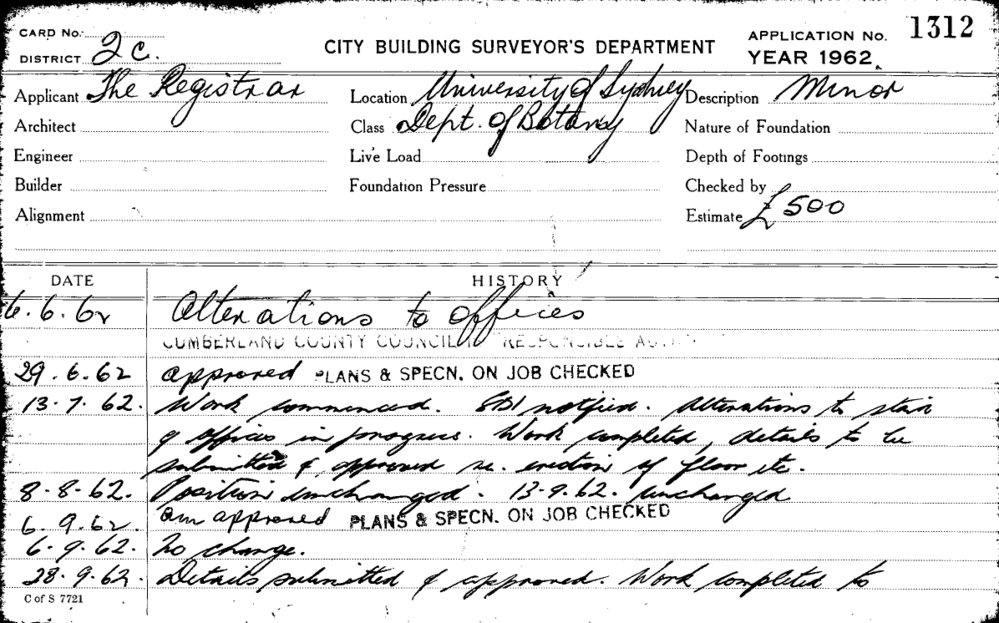 CARD No.
DISTRICT 2 C.
CITY BUILDING SURVEYOR'S DEPARTMENT
APPLICATION No. 1312
YEAR 1962.
Applicant The Registrar Location University of Sydney Description Minor
Architect Class Dept. of Botany Nature of Foundation
Engineer Live Load Depth of Footings
Builder Foundation Pressure Checked by
Alignment Estimate £500
DATE HISTORY
6.6.62 Alterations to offices
CUMBERLAND COUNTY COUNCIL RESPONSIBLE
29.6.62 approved PLANS & SPECN. ON JOB CHECKED
13.7.62. Work commenced. notified. Alterations to stair
& offices in progress. Work completed, details to be
submitted & approved re. erection of floor etc.
8.8.62. Position unchanged. 13.9.62. unchanged
6.9.62. am approved PLANS & SPECN. ON JOB CHECKED
6.9.62. No change.
28.9.62. Details submitted & approved. Work completed to
C of S 7721